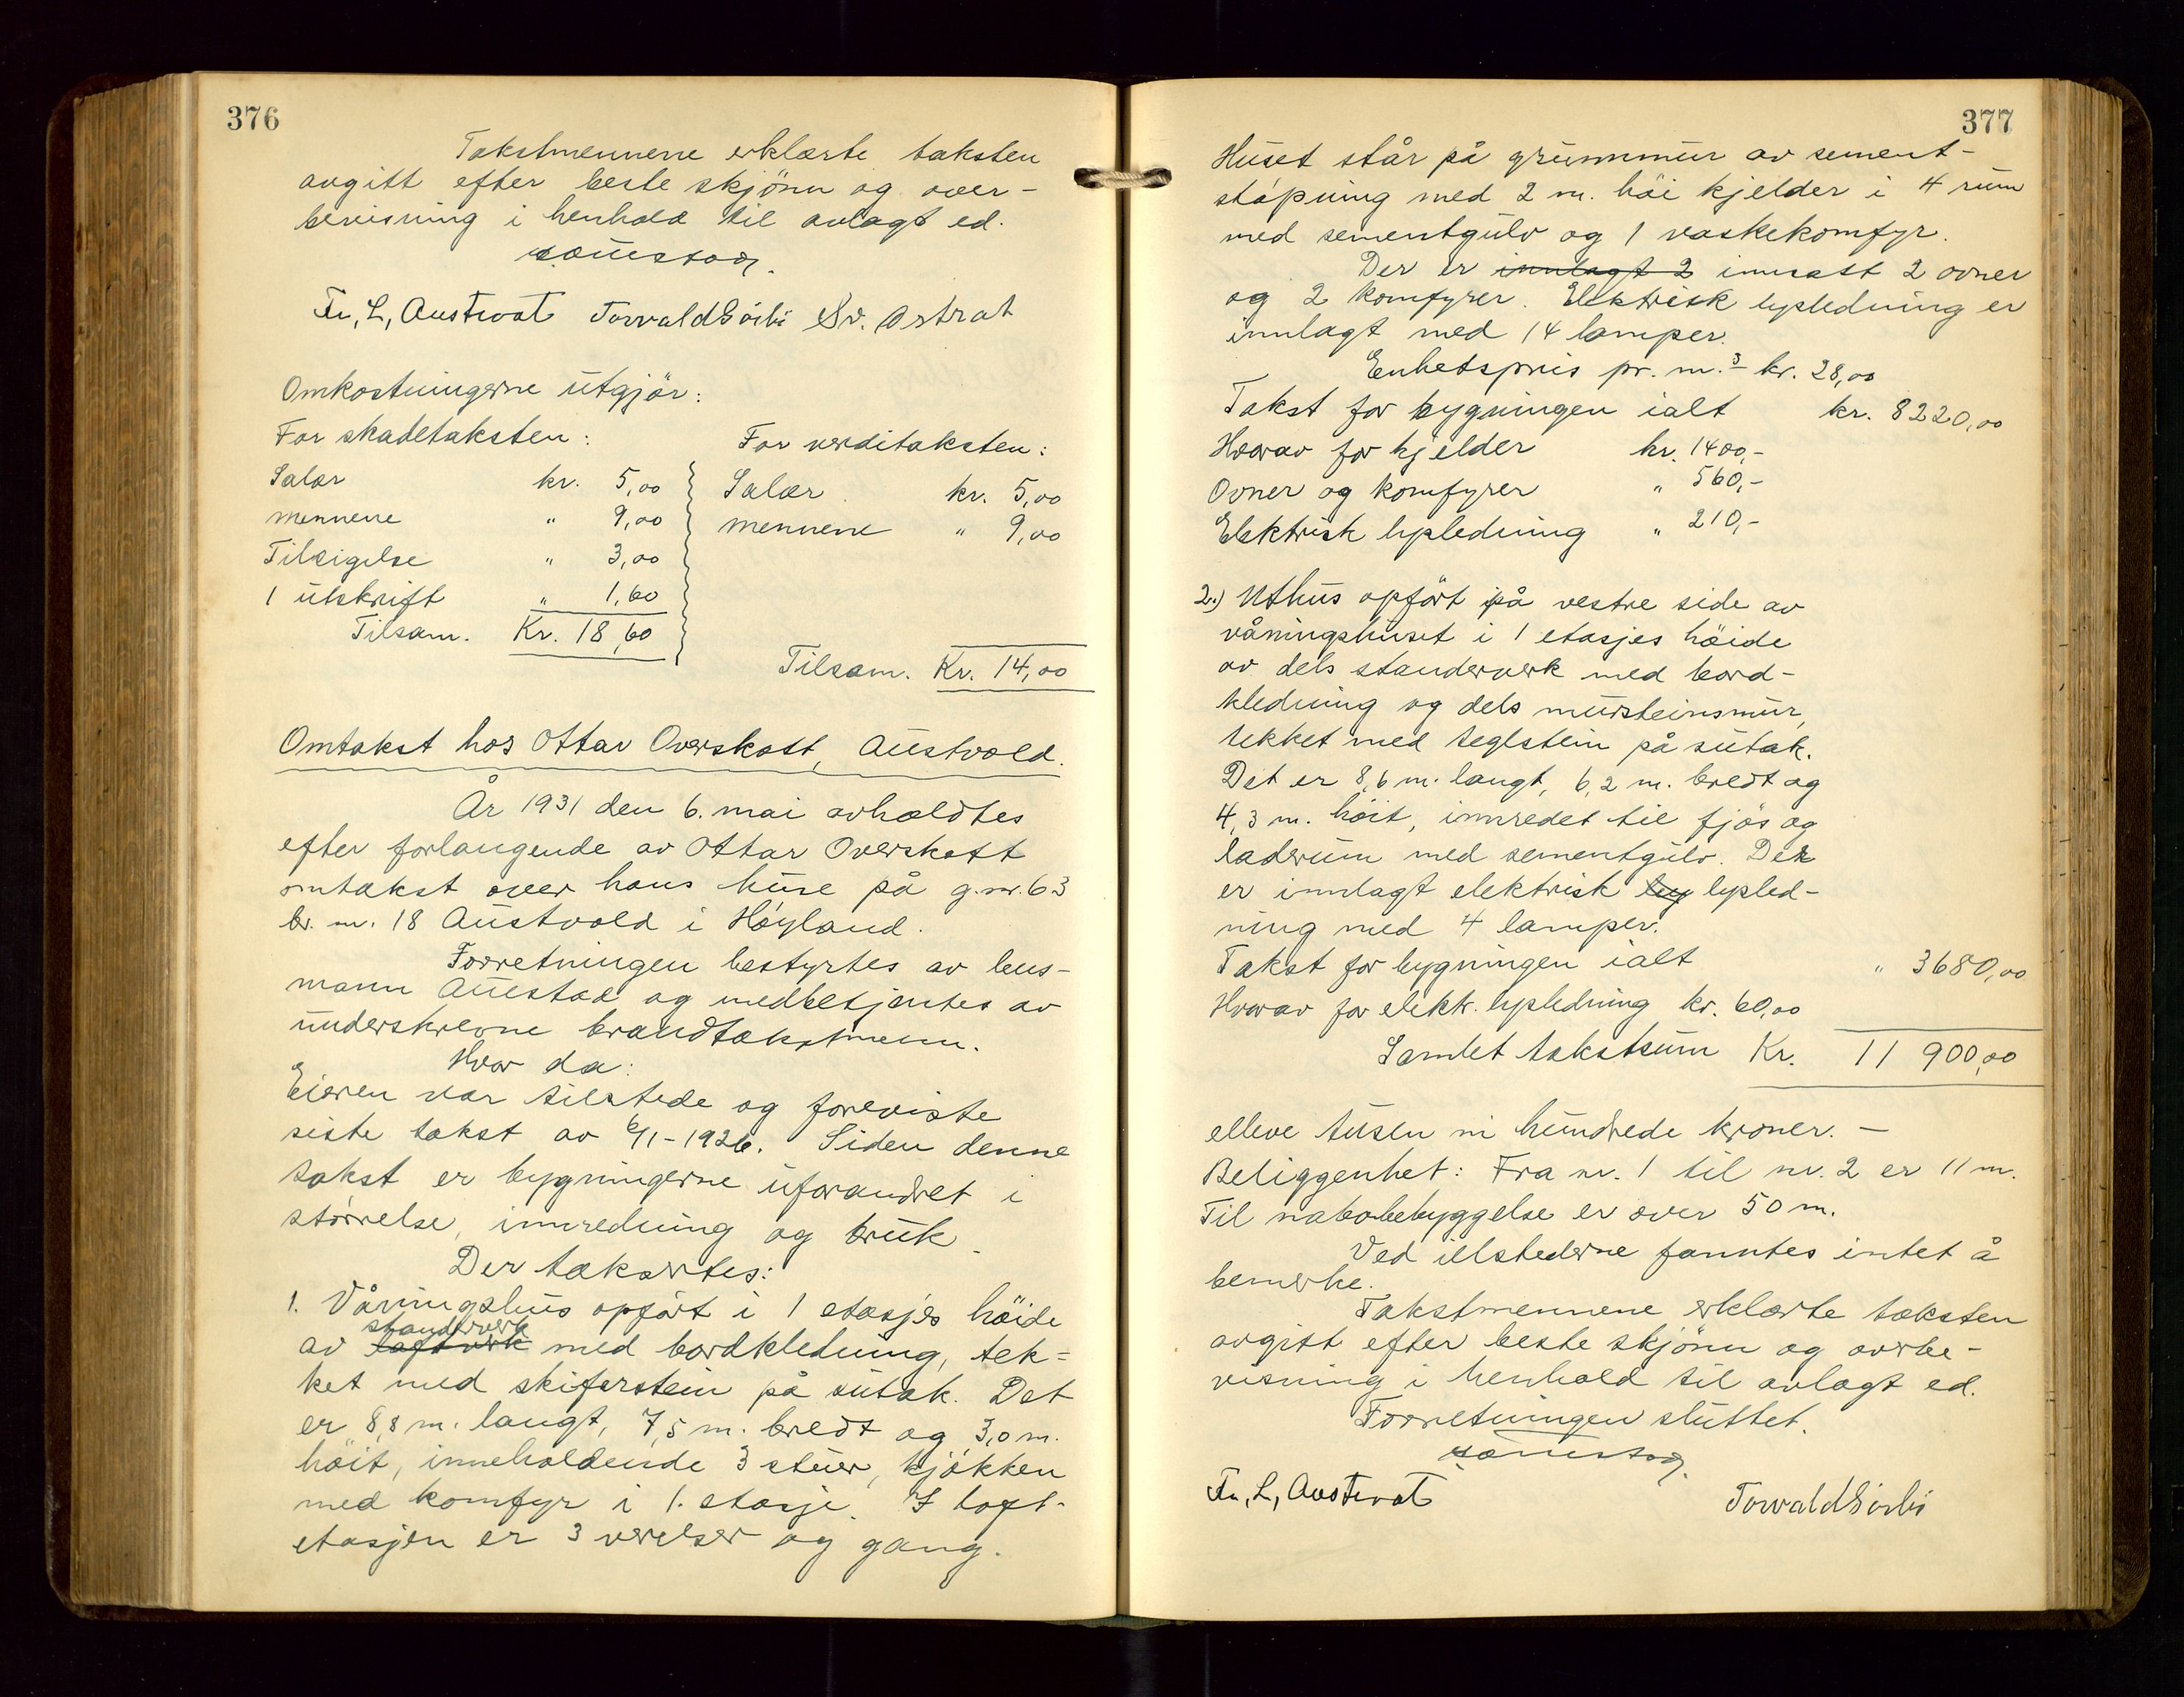 376
Takstmennene erklærte taksten
avgitt efter beste skjönn og over-
bevisning i henhold til avlagt ed.
Auestad.
Fr. L, Austvoll Torvald Sörbö Sv. Östråt
Omkostningerne utgjör:
For skadetaksten: For verditaksten:
Salær kr. 5,00 Salær kr. 5,00
mennene " 9,00 mennene " 9,00
Tilsigelse " 3,00
1 utskrift " 1,60
Tilsam. Kr. 18,60
Tilsam. Kr. 14,00
Omtakst hos Ottar Overskott, Austvold.
År 1931 den 6. mai avholdtes
efter forlangende av Ottar Overskott
omtakst over hans huse på g.nr. 63
br. nr. 18 Austvold i Höyland.
Forretningen bestyrtes av lens-
mann Auestad og medbetjentes av
underskrevne brandtakstmenn.
Hvor da:
Eieren var tilstede og foreviste
siste takst av 6/1-1926. Siden denne
takst er bygningerne uforandret i
störrelse, innredning og bruk.
Der taksertes:
1. Våningshus opfört i 1 etasjes höide
standerverk
av laftverk med bordkledning, tek=
ket med skiferstein på sutak. Det
er 8,8 m. langt, 7,5 m. bredt og 3,0 m.
höit, inneholdende 3 stuer, kjökken
med komfyr i 1. etasje. I loft-
etasjen er 3 værelser og gang.
377
Huset står på grunnmur av sement-
stöpning med 2 m. höi kjelder i 4 rum
med sementgulv og 1 vaskekomfyr.
Der er innlagt 2 innsatt 2 ovner
og 2 komfyrer. Elektrisk lysledning er
innlagt med 14 lamper.
Enhetspris pr. m.3 kr. 28,00
Takst for bygningen ialt kr. 8220,00
Hvorav for kjelder kr. 1400,-
Ovner og komfyrer " 560,-
Elektrisk lysledning " 210,-
2.) Uthus opfört på vestre side av
våningshuset i 1 etasjes höide
av dels standerverk med bord-
kledning og dels mursteinsmur,
tekket med teglstein på sutak.
Det er 8,6 m. langt, 6,2 m. bredt og
4,3 m. höit, innredet til fjös og
laderum med sementgulv. Der
er innlagt elektrisk ley lysled-
ning med 4 lamper.
Takst for bygningen ialt " 3680,00
Hvorav for elektr. lysledning kr. 60,00
Samlet takstsum Kr. 11 900,00
elleve tusen ni hundrede kroner. —
Beliggenhet: Fra nr. 1 til nr. 2 er 11 m.
Til nabobebyggelse er over 50 m.
Ved ildstederne fanntes intet å
bemerke.
Takstmennene erklærte taksten
avgitt efter beste skjönn og overbe-
visning i henhold til avlagt ed.
Forretningen sluttet.
Auestad.
Fr, L, Austvoll Torvald Sörbö